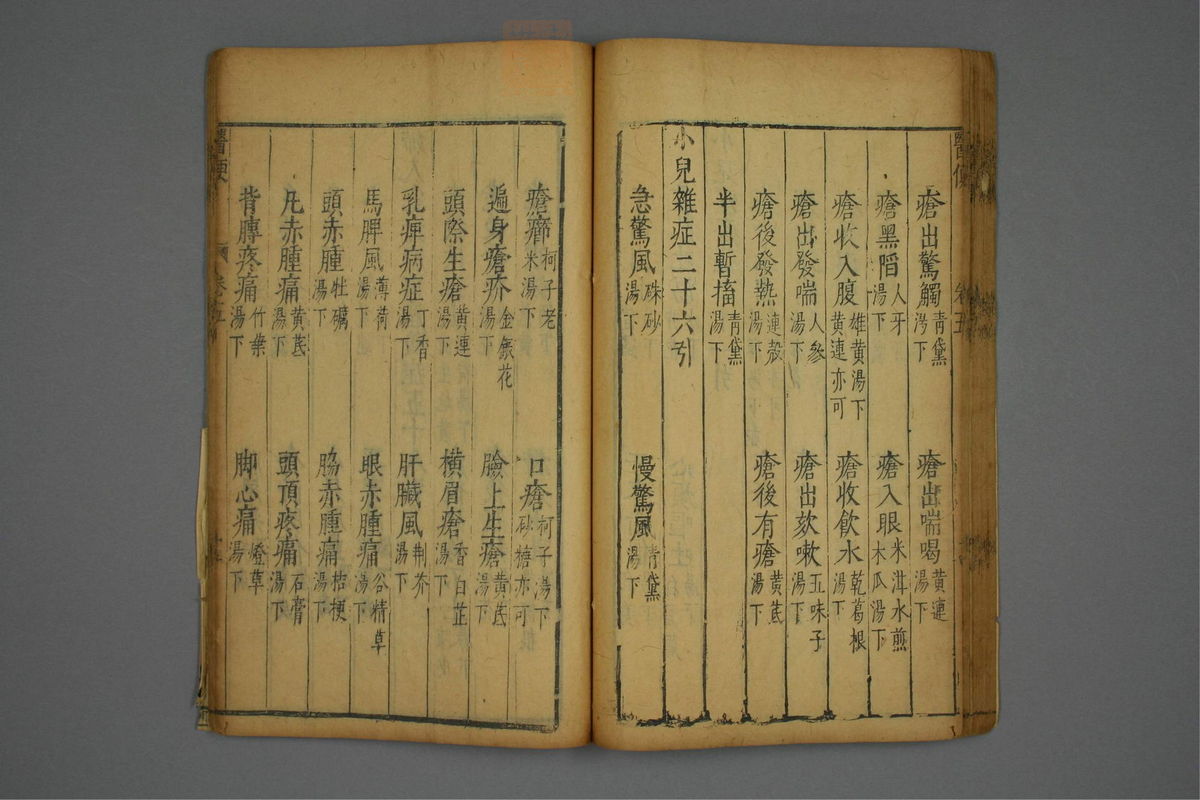 瘡出驚觸青黛湯下 瘡出喘喝黃連湯下
瘡黑陷人牙湯下 瘡入眼米泔水煎木瓜湯下
瘡收入腹雄黃湯下黃連亦可 瘡收飲水乾葛根湯下
瘡出發喘人參湯下 瘡出欬嗽五味子湯下
瘡後發熱連殼湯下 瘡後有瘡黃芪湯下
半出暫搐青黛湯下
小兒雜症二十六引
急驚風硃砂湯下 慢驚風青黛湯下
瘡癤柯子老米湯下 口瘡柯子湯下砂糖亦可
遍身瘡疥金銀花湯下 臉上生瘡黃芪湯下
頭際生瘡黃連湯下 橫眉瘡香白芷湯下
乳痺病症丁香湯下 肝臟風荆芥湯下
馬脾風薄荷湯下 眼赤腫痛谷精草湯下
頭赤腫牡礪湯下 脇赤腫痛桔梗湯下
凡赤腫痛黃芪湯下 頭頂疼痛石膏湯下
背膊疼痛竹葉湯下 脚心痛燈草湯下
醫便
卷五